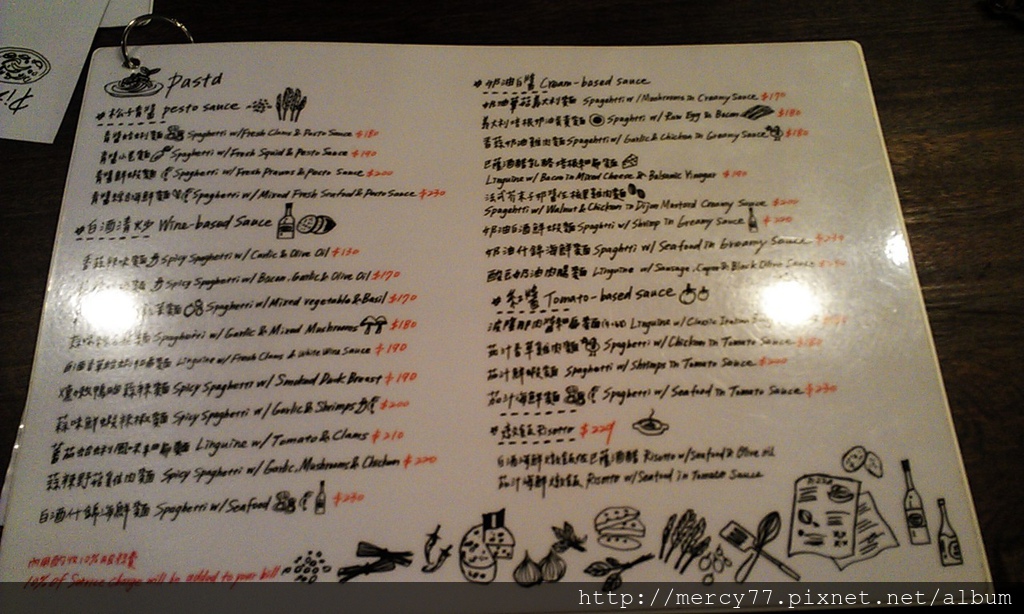 Pasta
松子青醬 pesto sauce
青醬蛤蜊麵 Spaghetti w/Fresh Clams & Pesto Sauce $180
青醬小卷麵 Spaghetti w/Fresh Squid & Pesto Sauce $190
青醬鮮蝦麵 Spaghetti w/Fresh Prawns & Pesto Sauce $200
青醬綜合海鮮麵 Spaghetti w/Mixed Fresh Seafood & Pesto Sauce $230
白酒清炒 Wine-based Sauce
香蒜辣味麵 Spicy Spaghetti w/Garlic & Olive Oil $130
Spicy Spaghetti w/Bacon, Garlic & Olive Oil $170
Spaghetti w/Mixed vegetable & Basil $170
Spaghetti w/Garlic & Mixed Mushrooms $180
Linguine w/Fresh Clams & White Wine Sauce $190
煙燻鴨胸蒜辣麵 Spicy Spaghetti w/Smoked Duck Breast $190
蒜味鮮蝦辣椒麵 Spicy Spaghetti w/Garlic & Shrimps $200
Linguine w/Tomato & Clams $210
蒜辣野菇雞肉麵 Spicy Spaghetti w/Garlic, Mushrooms & Chicken $220
白酒什錦海鮮麵 Spaghetti w/Seafood $230
內用酌收10%服務費
10% of Service charge will be added to your bill
奶油白醬 Cream-based sauce
奶油蘑菇義大利麵 Spaghetti w/Mushrooms in Creamy Sauce $170
義大利培根奶油蛋黃麵 Spaghetti w/ Raw Egg & Bacon
蘑菇奶油雞肉麵 Spaghetti w/ Garlic & Chicken in Creamy Sauce $180
巴薩米克醋乳酪培根知麵
Linguine w/ Bacon in Mixed Cheese & Balsamic Vinegar $190
法式芥末子奶醬核桃雞肉麵
Spaghetti w/ Walnut & Chicken in Dijon Mustard Creamy Sauce $200
奶油白酒鮮蝦麵 Spaghetti w/ Shrimp in Creamy Sauce $220
奶油什錦海鮮麵 Spaghetti w/ Seafood in Creamy Sauce $230
酸豆奶油肉腸麵 Linguine w/ Sausage, Caper & Black Olive Sauce
紅醬 Tomato-based sauce
Linguine w/ Classic Italian
茄汁香草雞肉麵 Spaghetti w/ Chicken in Tomato Sauce $180
茄汁鮮蝦麵 Spaghetti w/ Shrimps in Tomato Sauce $200
茄汁海鮮麵 Spaghetti w/ Seafood in Tomato Sauce $230
燉飯 Risotto $229
Risotto w/Seafood & Olive oil
茄汁海鮮燉飯 Risotto w/Seafood in Tomato Sauce
http://mercy77.pixnet.net/album